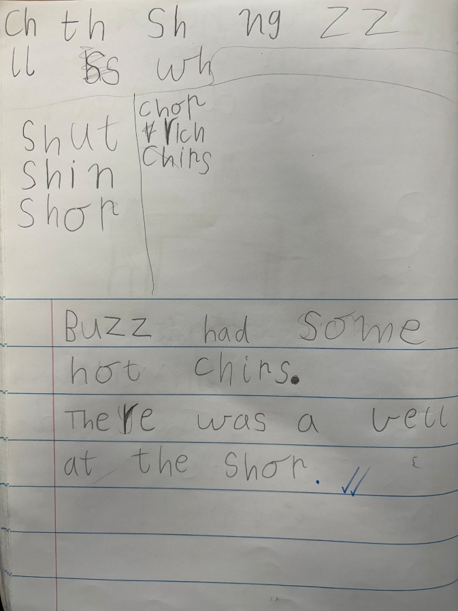 Ch th sh ng zz
ll ss wh
shut
shin
shop
chop
rich
chips
Buzz had some
hot chips.
There was a bell
at the shop.